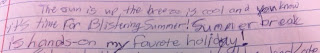 The sun is up the breeze is cool and you know
it's time for Blistering Summer! Summer break
is hands-on my Fourete holiday!